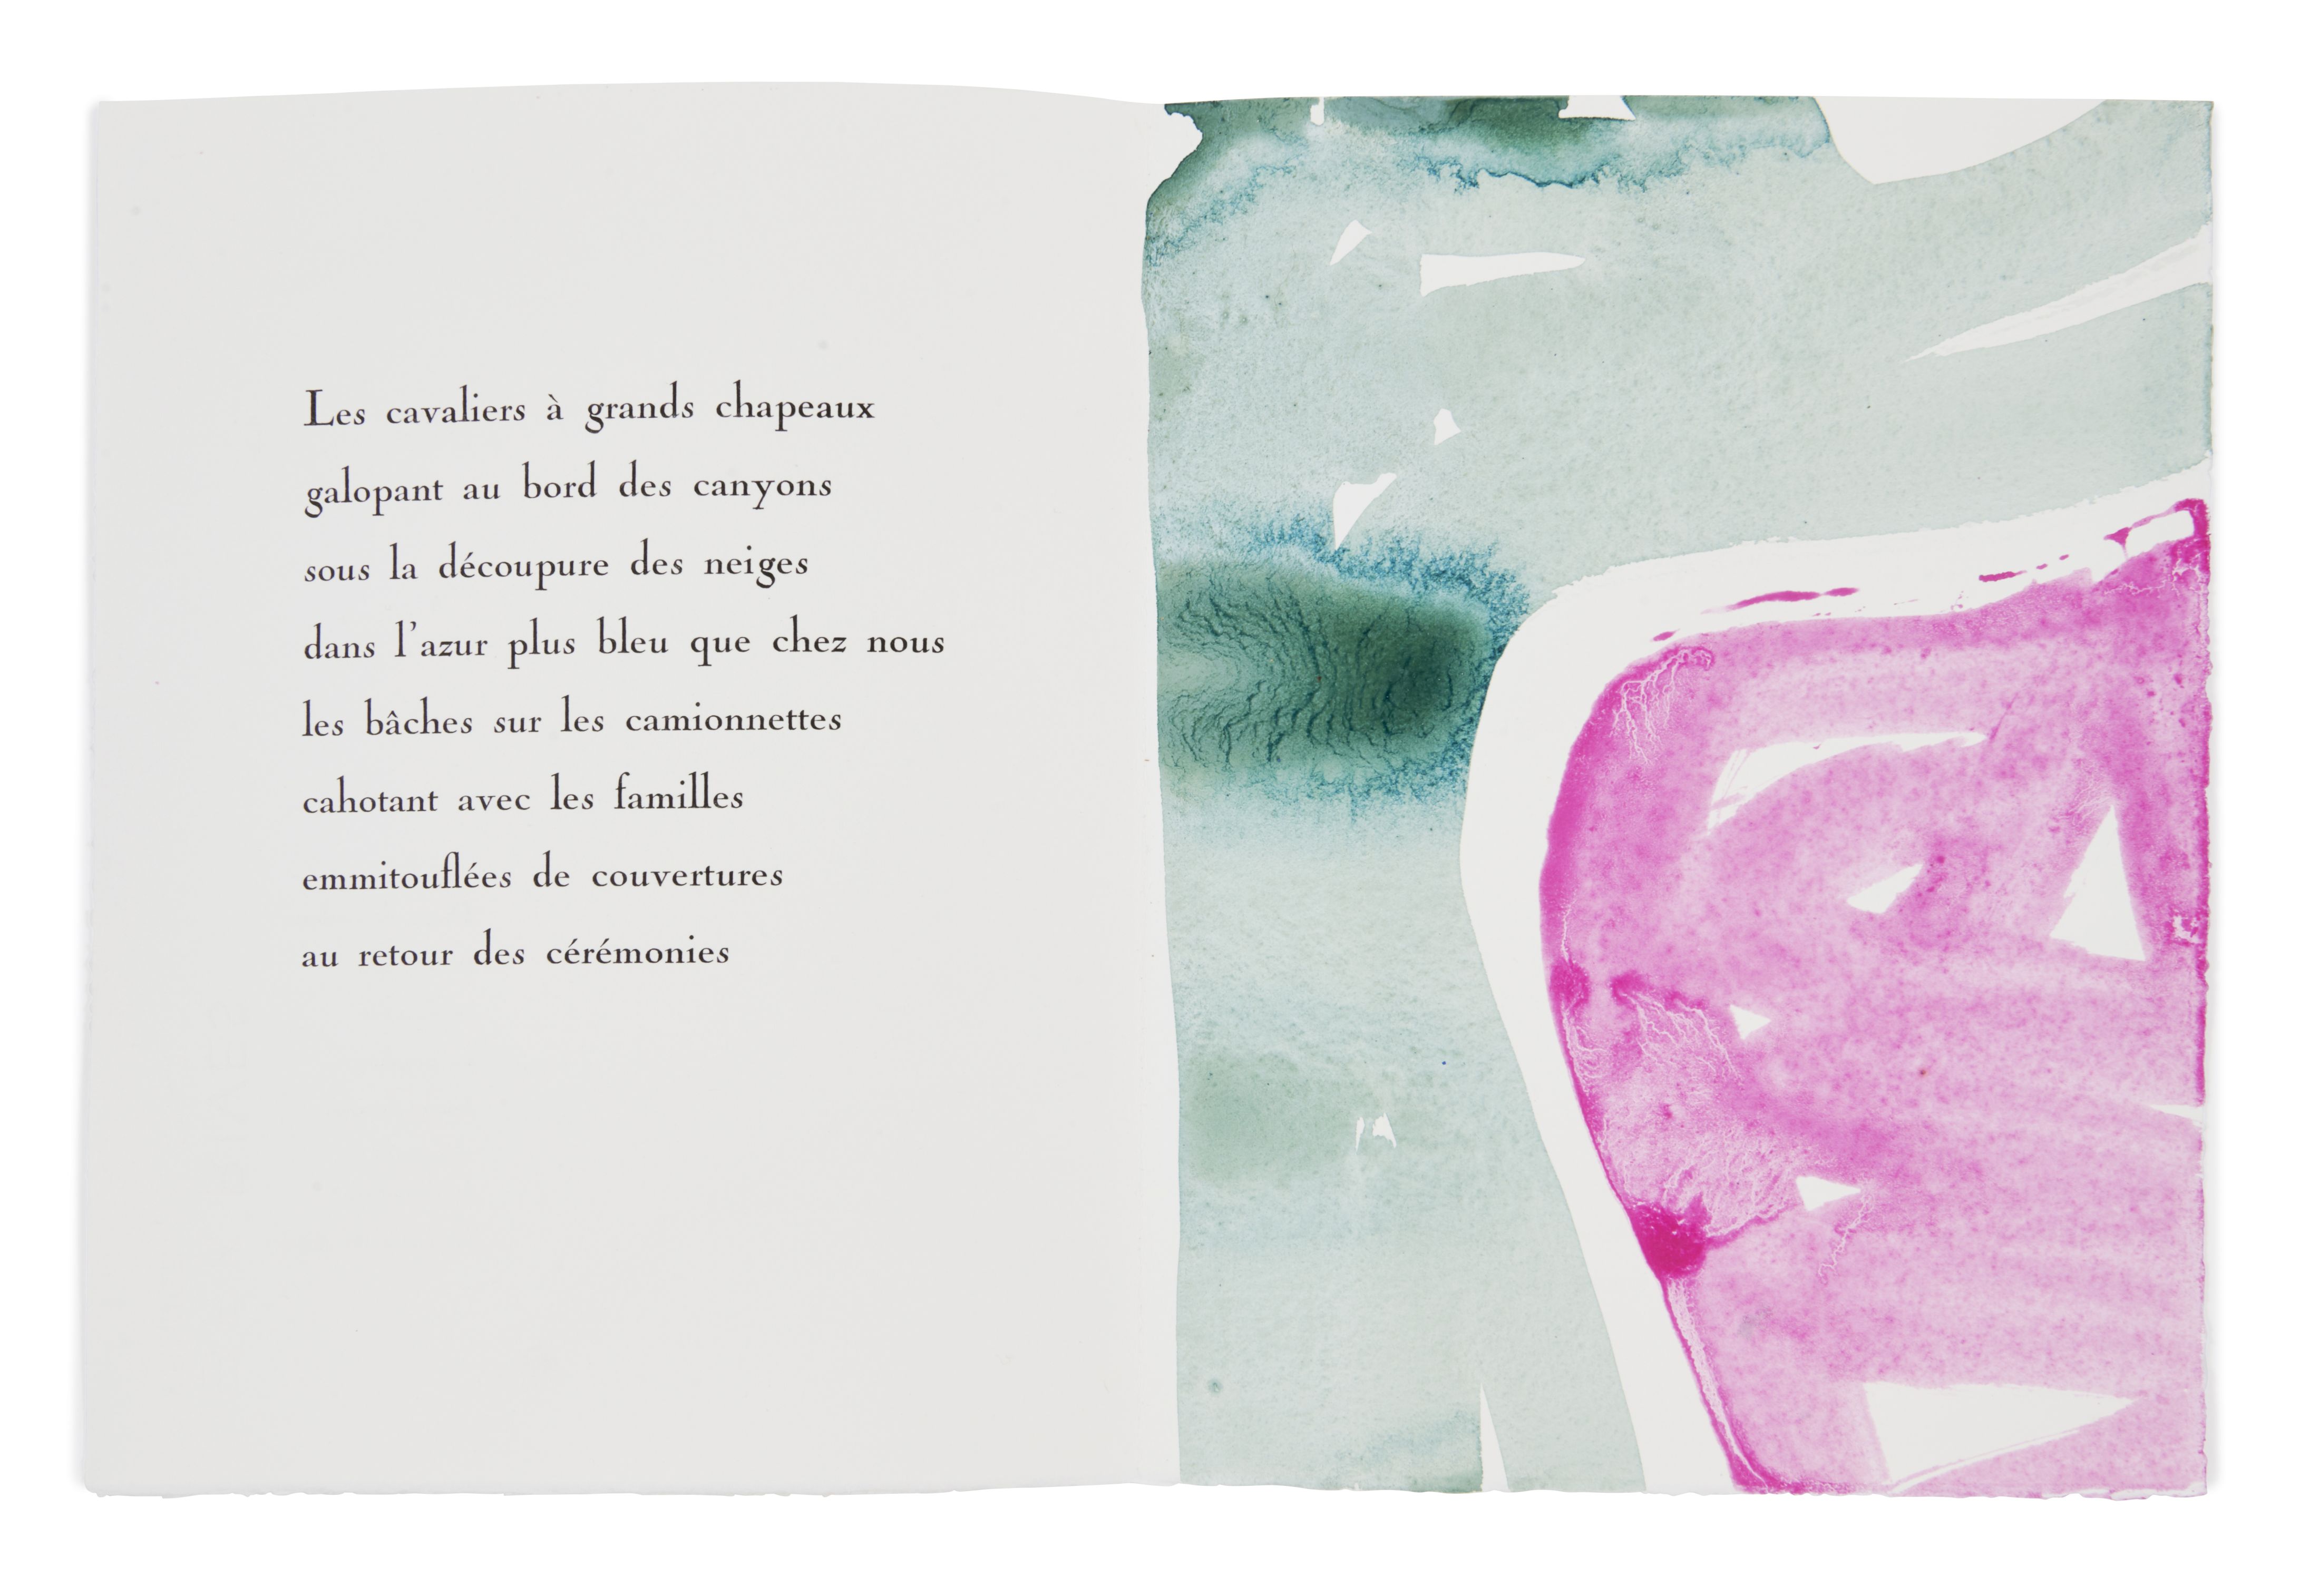 Les cavaliers à grands chapeaux
galopant au bord des canyons
sous la découpure des neiges
dans l'azur plus bleu que chez nous
les bâches sur les camionnettes
cahotant avec les familles
emmitouflées de couvertures
au retour des cérémonies